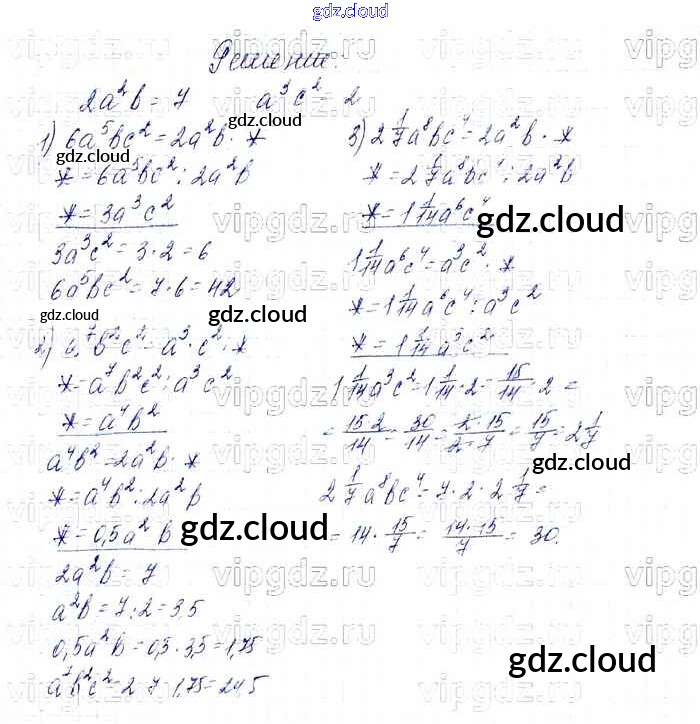 gdz.cloud
Решение.
2a²b = 7 a³c² = 2
1) 6a⁵bc² = 2a²b · *
* = 6a⁵bc² : 2a²b
* = 3a³c²
3a³c² = 3 · 2 = 6
6a⁵bc² = 7 · 6 = 42
2) a⁷b²c² = a³ · c² · *
* = a⁷b²c² : a³c²
* = a⁴b²
a⁴b² = 2a²b · *
* = a⁴b² : 2a²b
* = 0,5a²b
2a²b = 7
a²b = 7 : 2 = 3,5
0,5a²b = 0,5 · 3,5 = 1,75
a⁷b²c² = 2 · 7 · 1,75 = 24,5
3) 2 1/7 a⁸bc⁴ = 2a²b · *
* = 2 1/7 a⁸bc⁴ : 2a²b
* = 1 1/14 a⁶c⁴
1 1/14 a⁶c⁴ = a³c² · *
* = 1 1/14 a⁶c⁴ : a³c²
* = 1 1/14 a³c²
1 1/14 a³c² = 1 1/14 · 2 = 15/14 · 2 =
= 15·2/14 = 30/14 = 2·15/2·7 = 15/7 = 2 1/7
2 1/7 a⁸bc⁴ = 7 · 2 · 2 1/7 =
= 14 · 15/7 = 14·15/7 = 30.
gdz.cloud
gdz.cloud
gdz.cloud
gdz.cloud
gdz.cloud
gdz.cloud
gdz.cloud
gdz.cloud
gdz.cloud
gdz.cloud
vipgdz.ru
vipgdz.ru
vipgdz.ru
vipgdz.ru